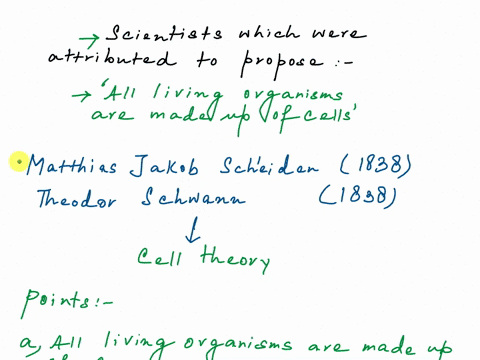 → Scientists which were
attributed to propose :-
→ 'All living organisms
are made up of cells'
Matthias Jakob Scheiden (1838)
Theodor Schwann (1838)
↓
Cell theory
Points:-
a, All living organisms are made up